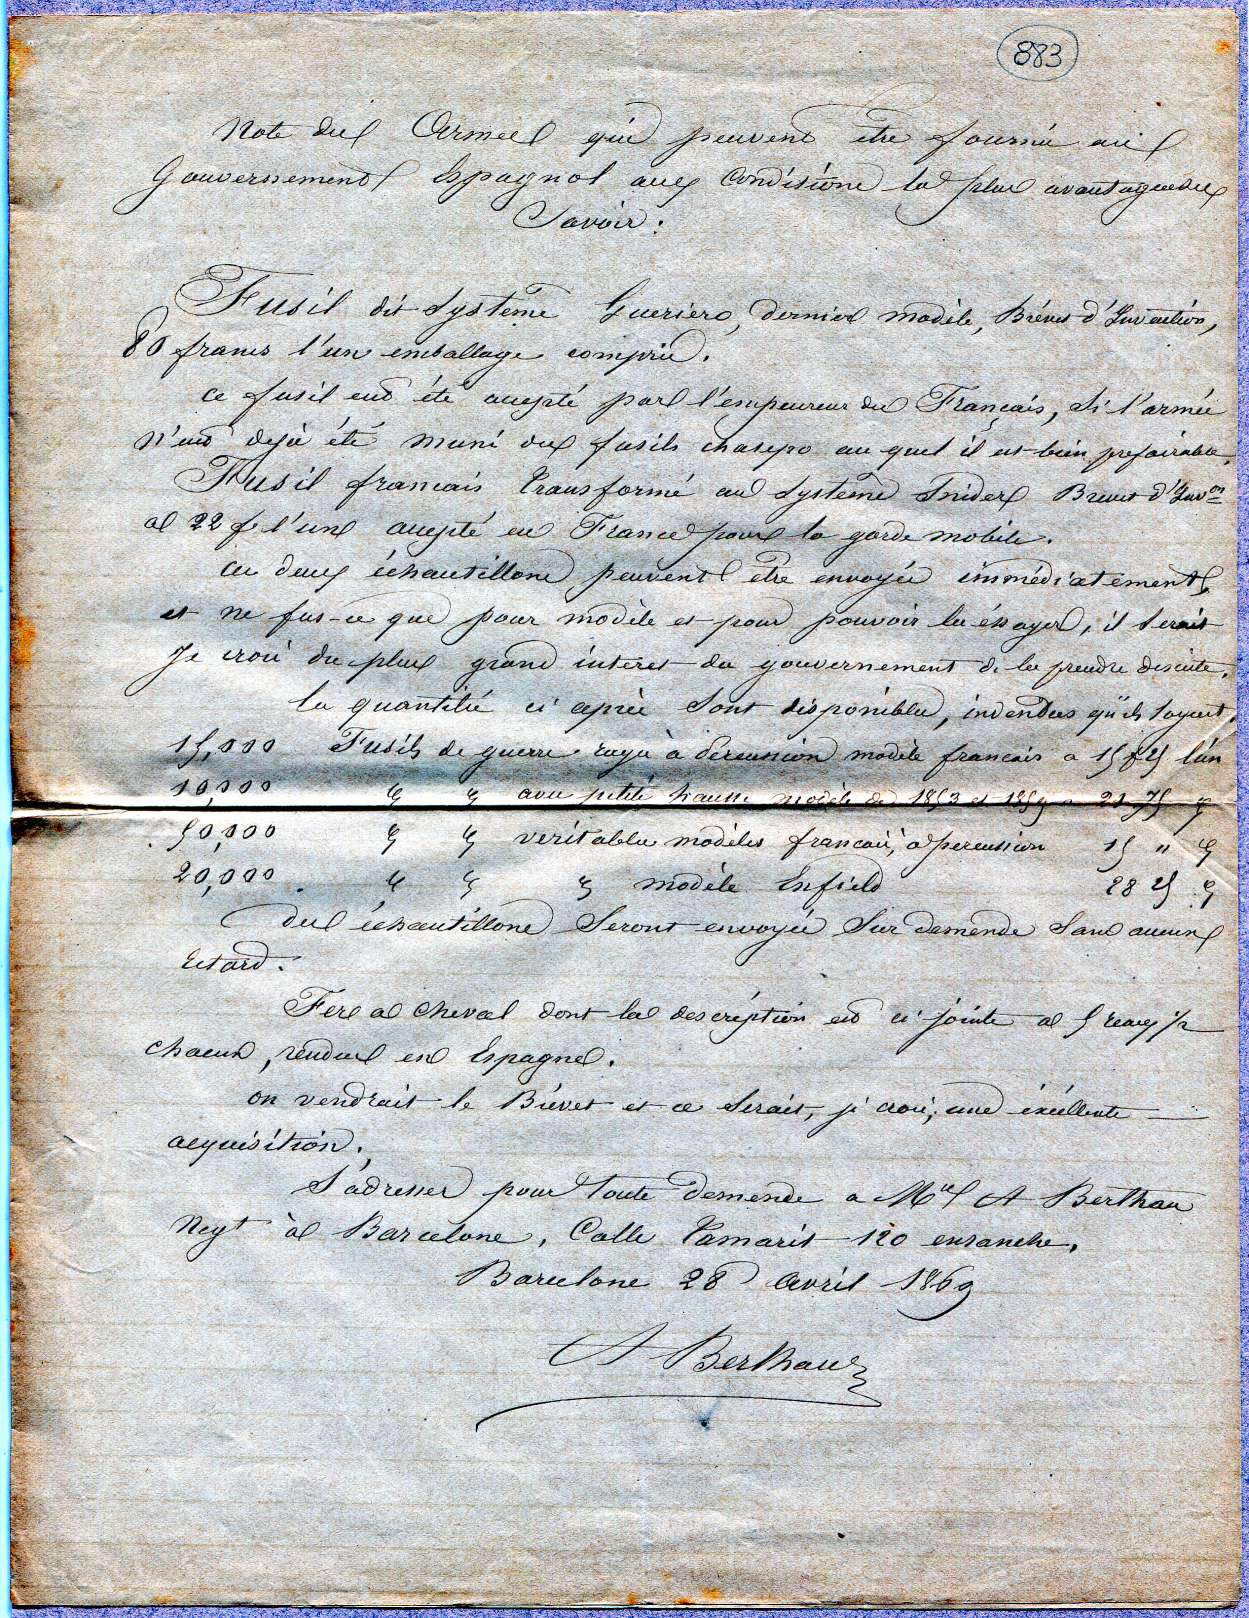 883
Note des Armes qui peuvent être fournie au
Gouvernement Espagnol aux Conditions la plus avantageuse
Savoir:
Fusil dit système Gueriero, dernier modèle, Brévet d'Invention,
80 francs l'un emballage compris.
ce fusil eut été accepté par l'empereur des Français, si l'armée
n'eut dejà été muni des fusils chasepo au quel il est bien prefairable.
Fusil francais transformé au système Snider Brevet d'Inv.on
a 22 f l'un accepté en France pour la garde mobile.
ces deux échantillons peuvent être envoyés immédiatement,
et ne fus-ce que pour modèle et pour pouvoir les éssayer, il serait
je crois du plus grand interet du gouvernement de les prendre desuite.
les quantités ci après sont disponibles, invendues qu'ils soyent,
15,000 Fusils de guerre rayés à percussion modèle francais a 15 f 25 l'un
10,000 " " avec petite hausse modèle de 1853 et 1859 a 21 75 "
50,000 " " veritables modèles francais, à percussion 15 " "
20,000 " " " modèle Enfield 28 25 "
des échantillons seront envoyés sur demende sans aucun
retard.
Fers a cheval dont la descréption est ci jointe a 5 reaux 1/2
chacun, rendus en Espagne.
on vendrait le Brévet et ce serait, je crois, une éxcéllente
acquisition.
S'adresser pour toute demende a Mr A Berthau
Negt à Barcelone, Calle Tamarit 120 ensanche.
Barcelone 28 avril 1869
A Berthau